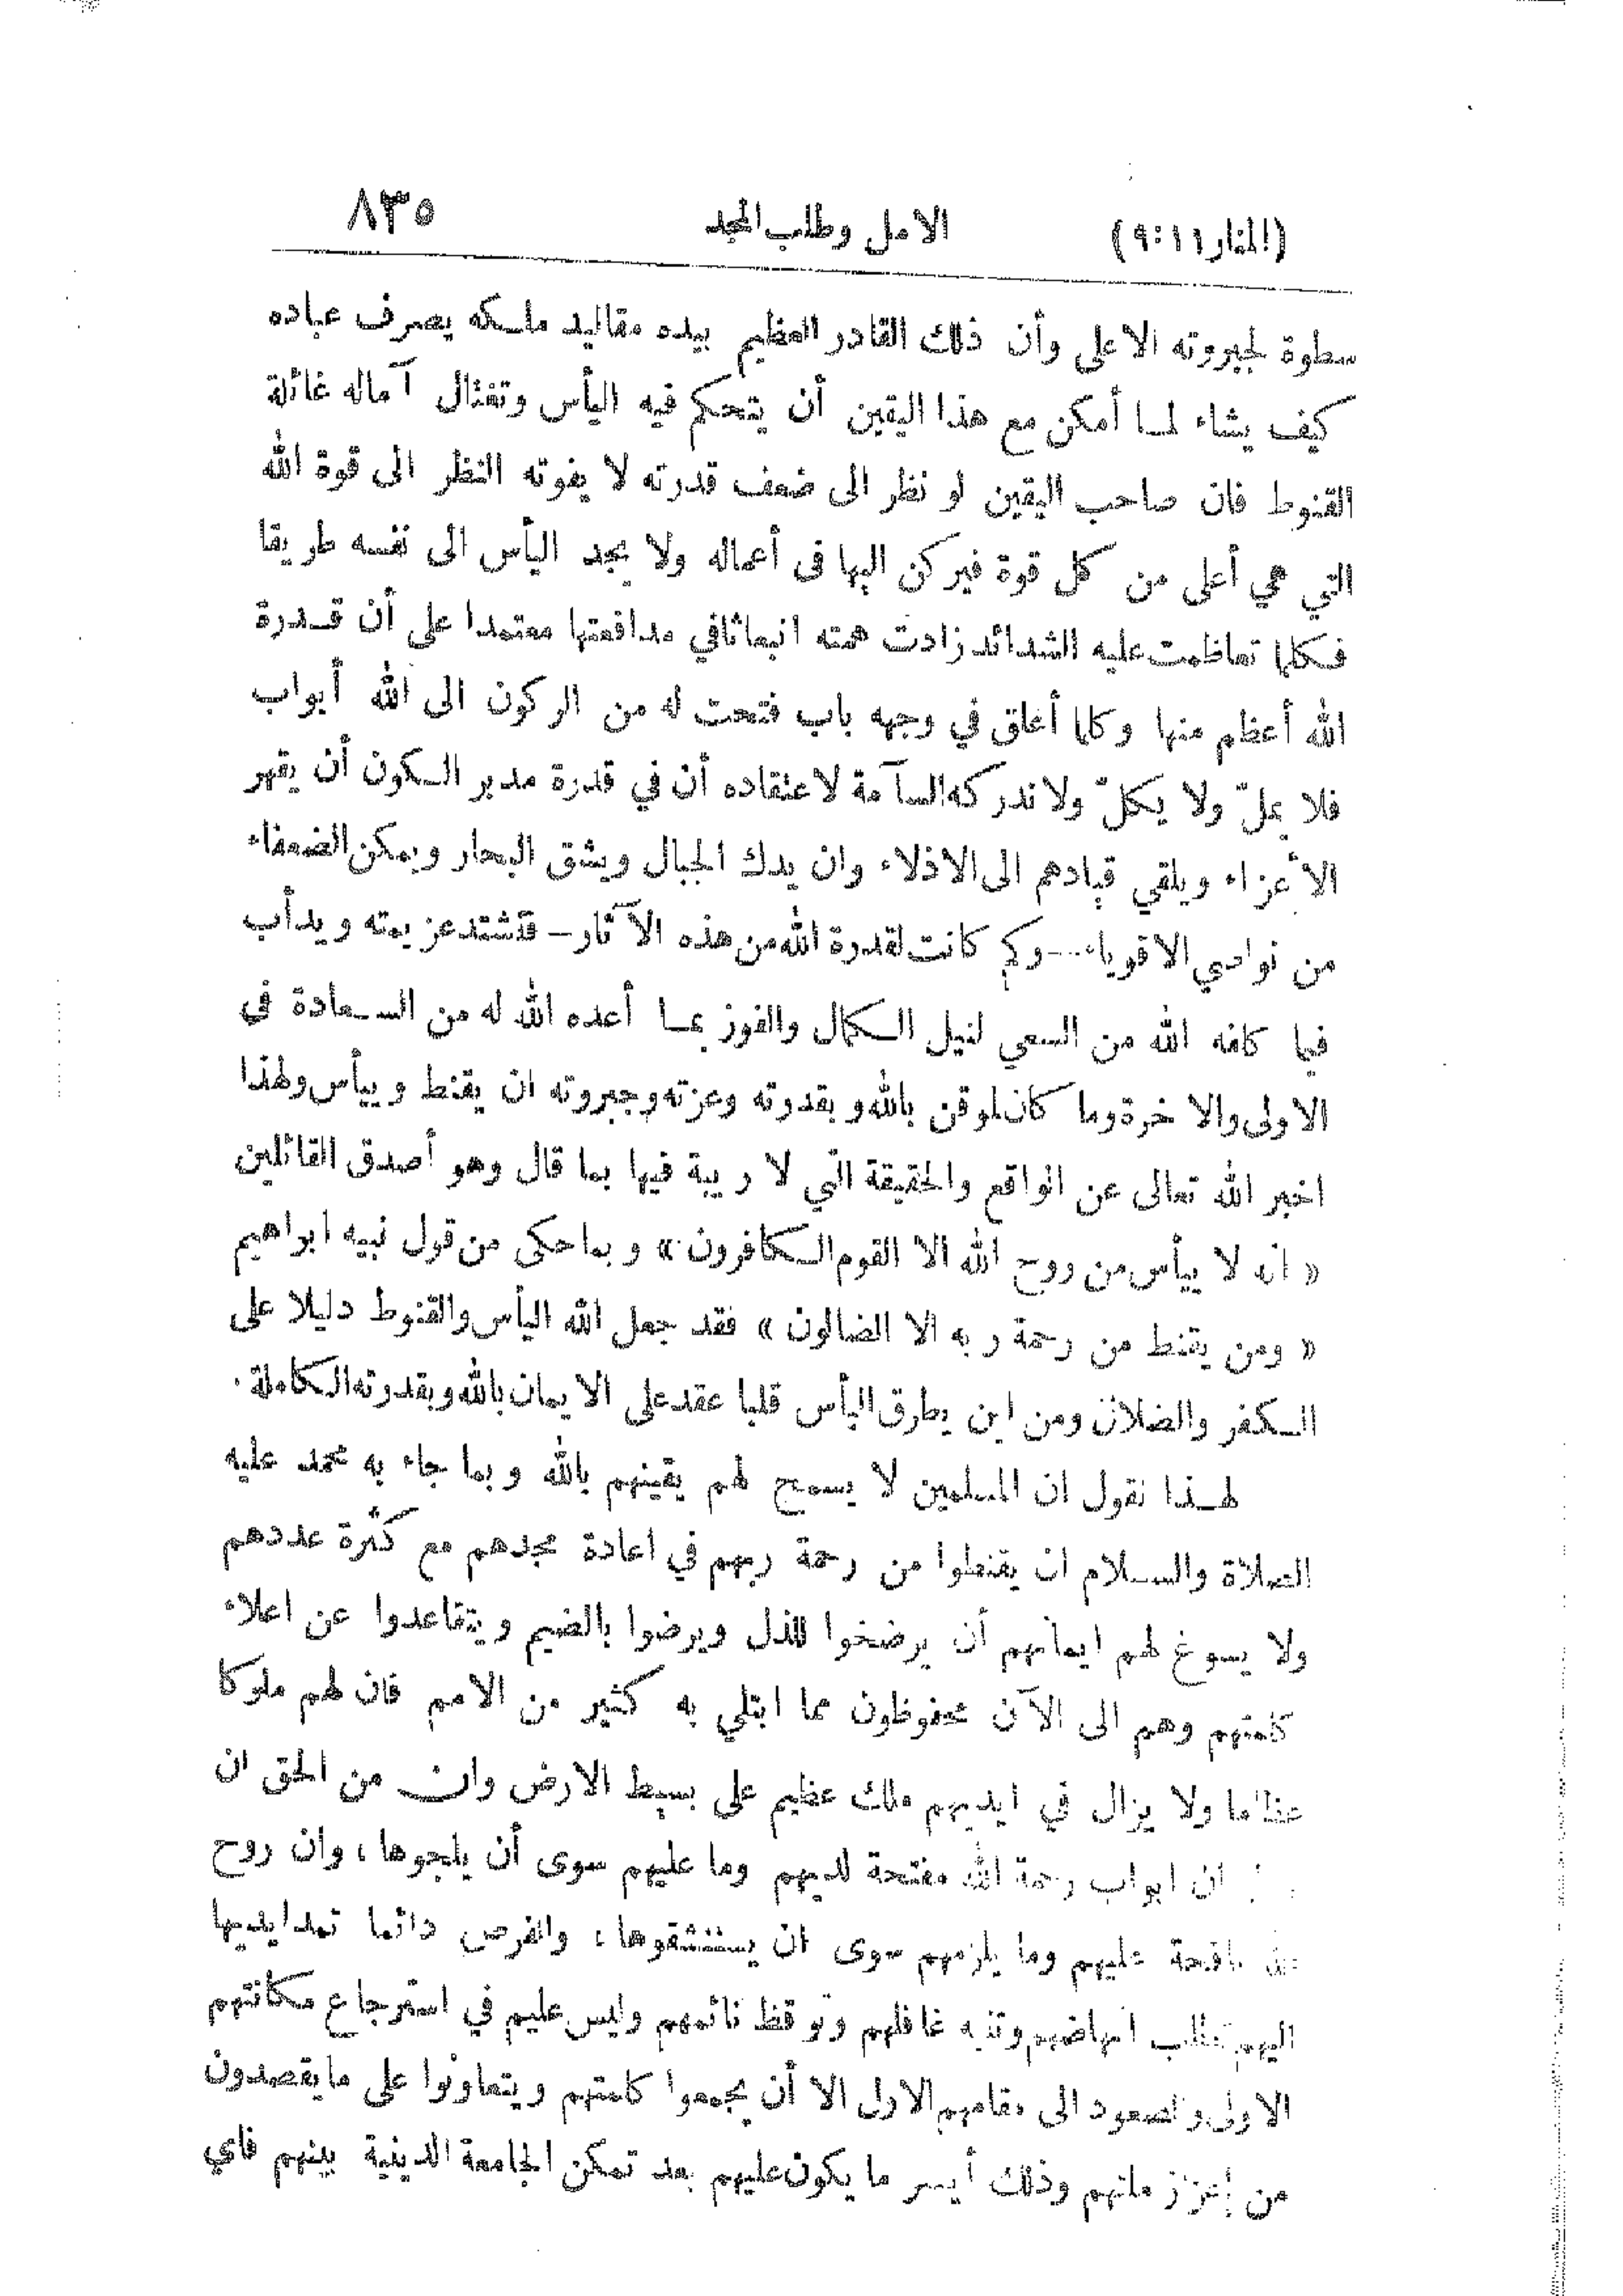 (المنار ١١:٩) الامل وطلب المجد ٨٣٥
سطوة لجبروته الاعلى وأن ذلك القادر العظيم بيده مقاليد ملكه يصرف عباده
كيف يشاء لما أمكن مع هذا اليقين أن يتحكم فيه اليأس وتغتال آماله غائلة
القنوط فان صاحب اليقين لو نظر الى ضعف قدرته لا يفوته النظر الى قوة الله
التي هي أعلى من كل قوة فيركن اليها في أعماله ولا يجد اليأس الى نفسه طريقا
فكلما تعاظمت عليه الشدائد زادت همته انبعاثا في مدافعتها معتمدا على أن قدرة
الله أعظم منها وكلما أغلق في وجهه باب فتحت له من الركون الى الله أبواب
فلا يملّ ولا يكلّ ولا تدركه السآمة لاعتقاده أن في قدرة مدبر الكون أن يقهر
الأعزاء ويلقي قيادهم الى الاذلاء وان يدك الجبال ويشق البحار ويمكن الضعفاء
من نواصي الاقوياء - وكم كانت لقدرة الله من هذه الآثار - فتشتد عزيمته ويدأب
فيما كلفه الله من السعي لنيل الكمال والفوز بما أعده الله له من السعادة في
الاولى والآخرة وما كان لموقن بالله وبقدرته وعزته وجبروته ان يقنط وييأس ولهذا
اخبر الله تعالى عن الواقع والحقيقة التي لا ريبة فيها بما قال وهو أصدق القائلين
« انه لا ييأس من روح الله الا القوم الكافرون » وبما حكى من قول نبيه ابراهيم
« ومن يقنط من رحمة ربه الا الضالون » فقد جعل الله اليأس والقنوط دليلا على
الكفر والضلال ومن اين يطرق اليأس قلبا عقد على الايمان بالله وبقدرته الكاملة .
لهذا نقول ان المسلمين لا يسمح لهم يقينهم بالله وبما جاء به محمد عليه
الصلاة والسلام ان يقنطوا من رحمة ربهم في اعادة مجدهم مع كثرة عددهم
ولا يسوغ لهم ايمانهم أن يرضخوا للذل ويرضوا بالضيم ويتقاعدوا عن اعلاء
كلمتهم وهم الى الآن محفوظون مما ابتلي به كثير من الامم فان لهم ملوكا
عظاما ولا يزال في ايديهم ملك عظيم على بسيط الارض وان من الحق ان
ان ابواب رحمة الله مفتحة لديهم وما عليهم سوى أن يلجوها ، وان روح
نافحة عليهم وما يلزمهم سوى ان يستنشقوها ، والفرص دائما تمد ايديها
اليهم تطلب انهاضهم وتنبه غافلهم وتوقظ نائمهم وليس عليهم في استرجاع مكانتهم
الاولى والصعود الى مقامهم الاول الا أن يجمعوا كلمتهم ويتعاونوا على ما يقصدون
من إعزاز ملتهم وذلك أيسر ما يكون عليهم بعد تمكن الجامعة الدينية بينهم فاي